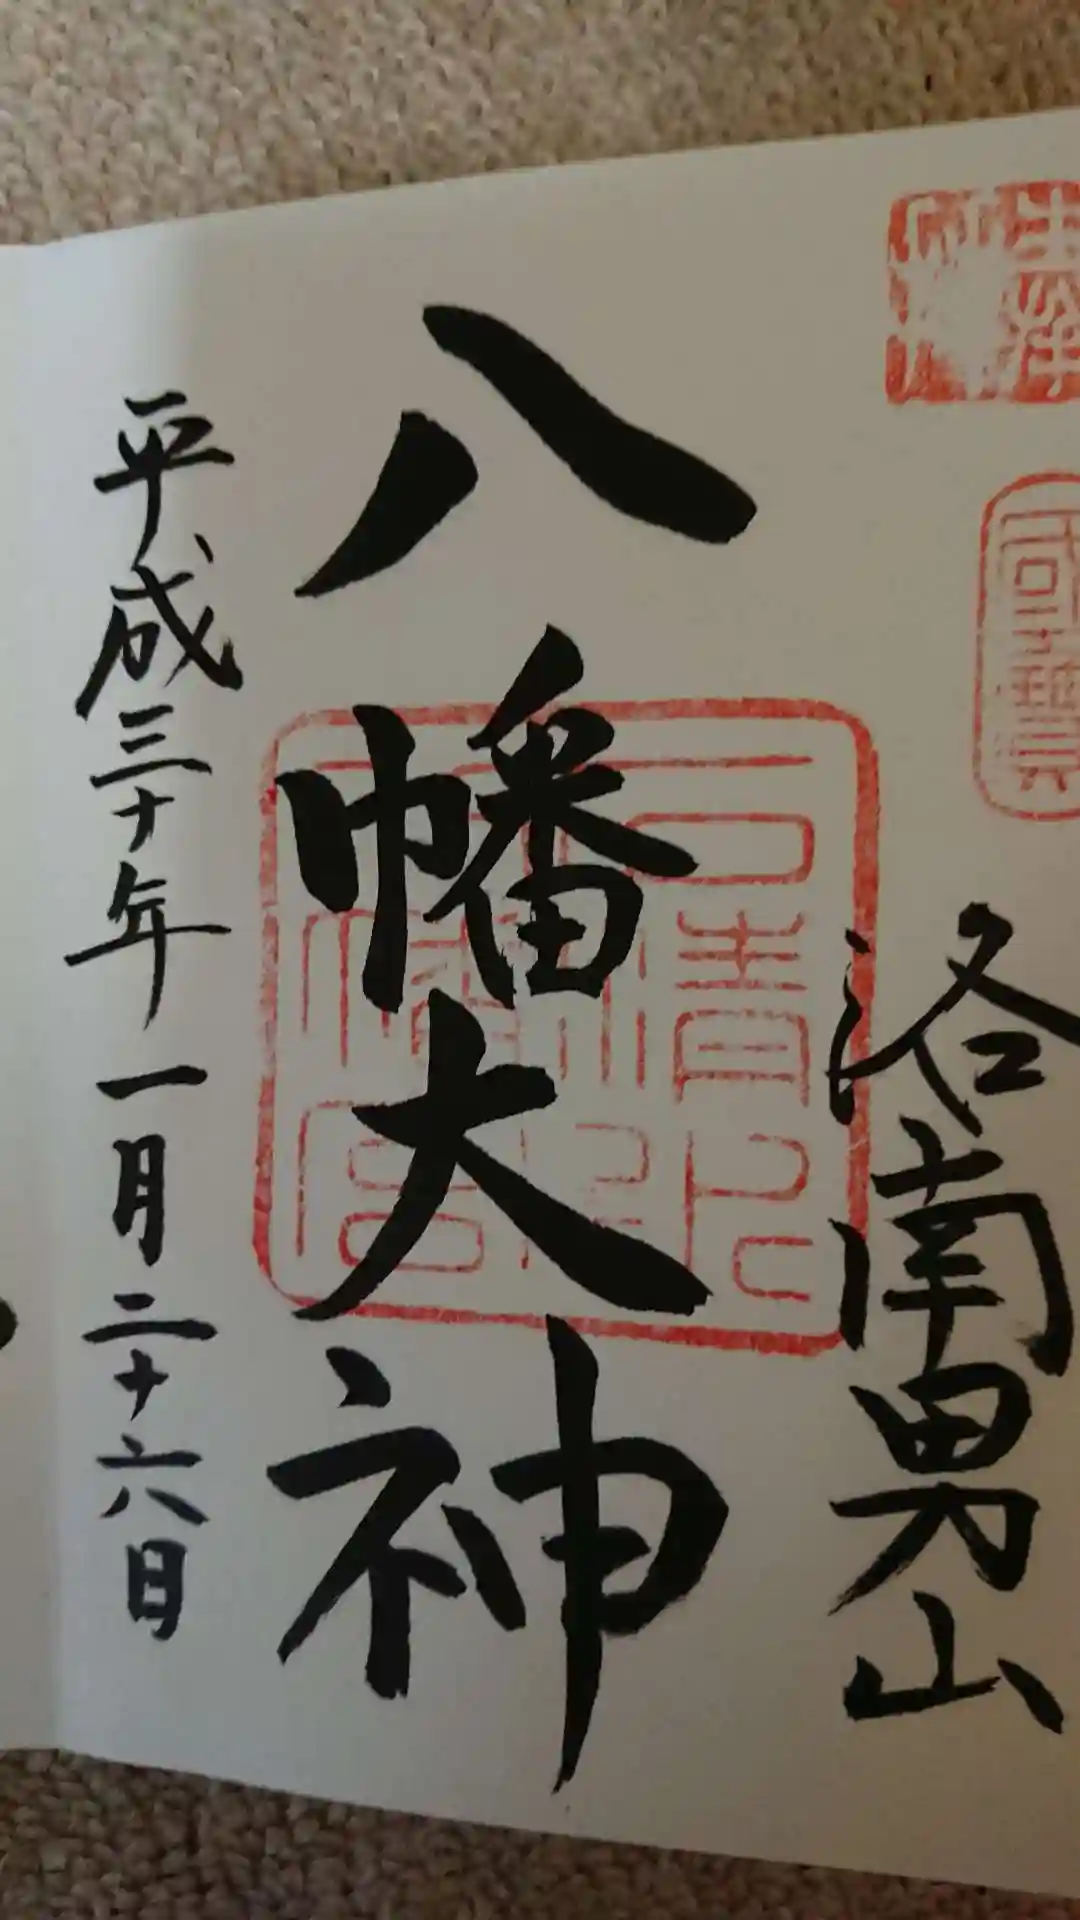 奉拝
國寳
洛南男山
八幡大神
石清水八幡宮
平成三十年一月二十六日